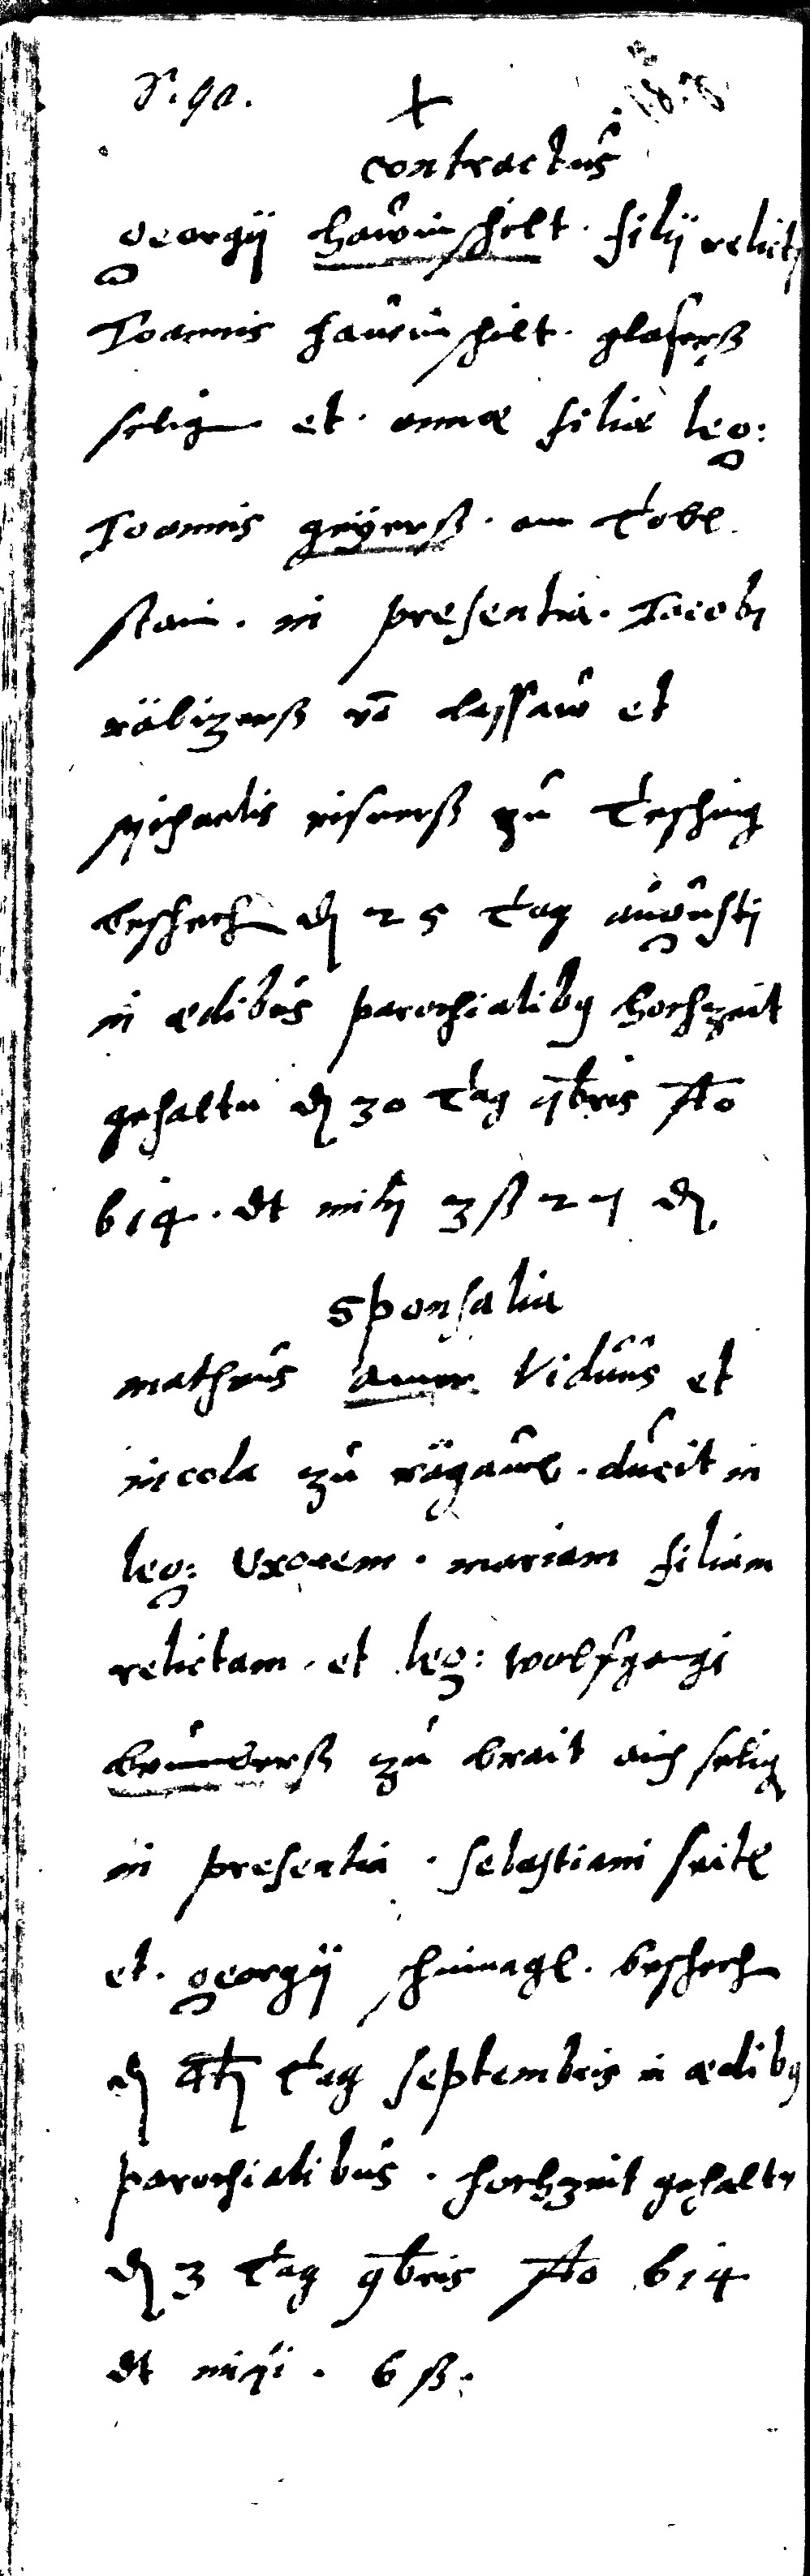 S. 90.
contractus
Georgij hawinschilt. filij relicti
Joannis hawinschilt. glaserß
selig et. annæ filiæ leg:
Joannis geyerß. am Tobl
stain. in presentia. Jacobi
räbizerß vō lassaw et
Michaelis eisnerß zu Tesching
beschech dē 25 Tag augusti
in ædibus parochialibq hochzeit
gehaltn dē 30 Tag 7bris Ao
614. dt mihi 3 ß 27 d.
Sponsalia
matheus auer Viduus et
incola zu rägawl. ducit in
leg: Vxorem. mariam filiam
relictam. et leg: wolfgangi
brunderß zu brait aich selig
in presentia. sebastiani seitl
et. georgij schinnagl. beschech
dē 4ti Tag septembris in ædibq
parochialibus. hochzeit gehaltn
dē 3 Tag 9bris Ao 614
dt mihi. 6 ß.